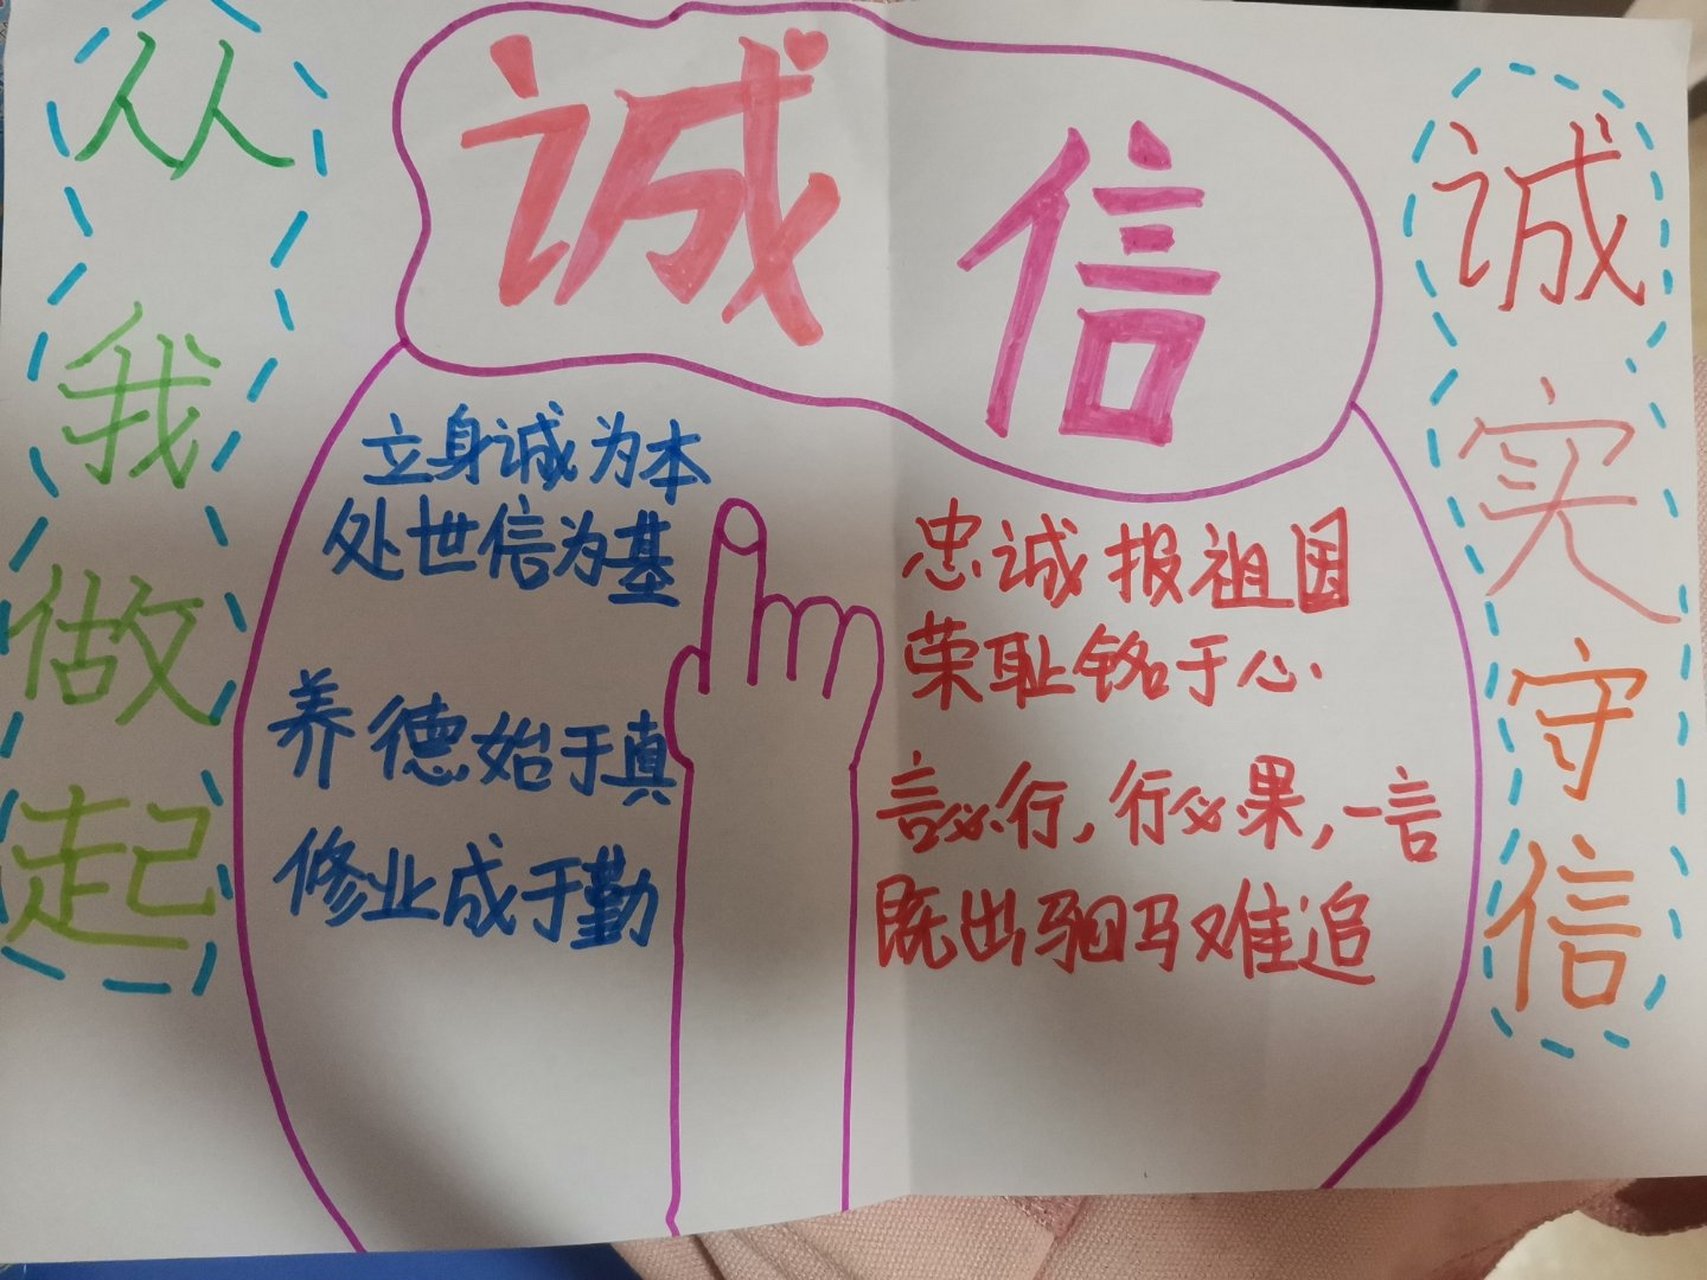 诚信
从我做起
立身诚为本
处世信为基
养德始于真
修业成于勤
忠诚报祖国
荣耻铭于心
言必行，行必果，一言
既出驷马难追
诚实守信